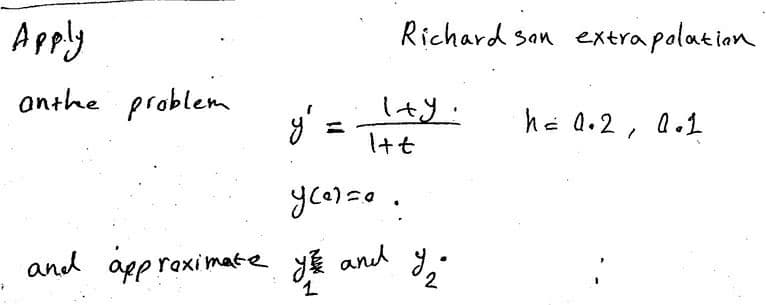 Apply Richardson extrapolation
onthe problem y' = (1+y)/(1+t) h = 0.2, 0.1
y(0)=0.
and approximate y1 and y2.